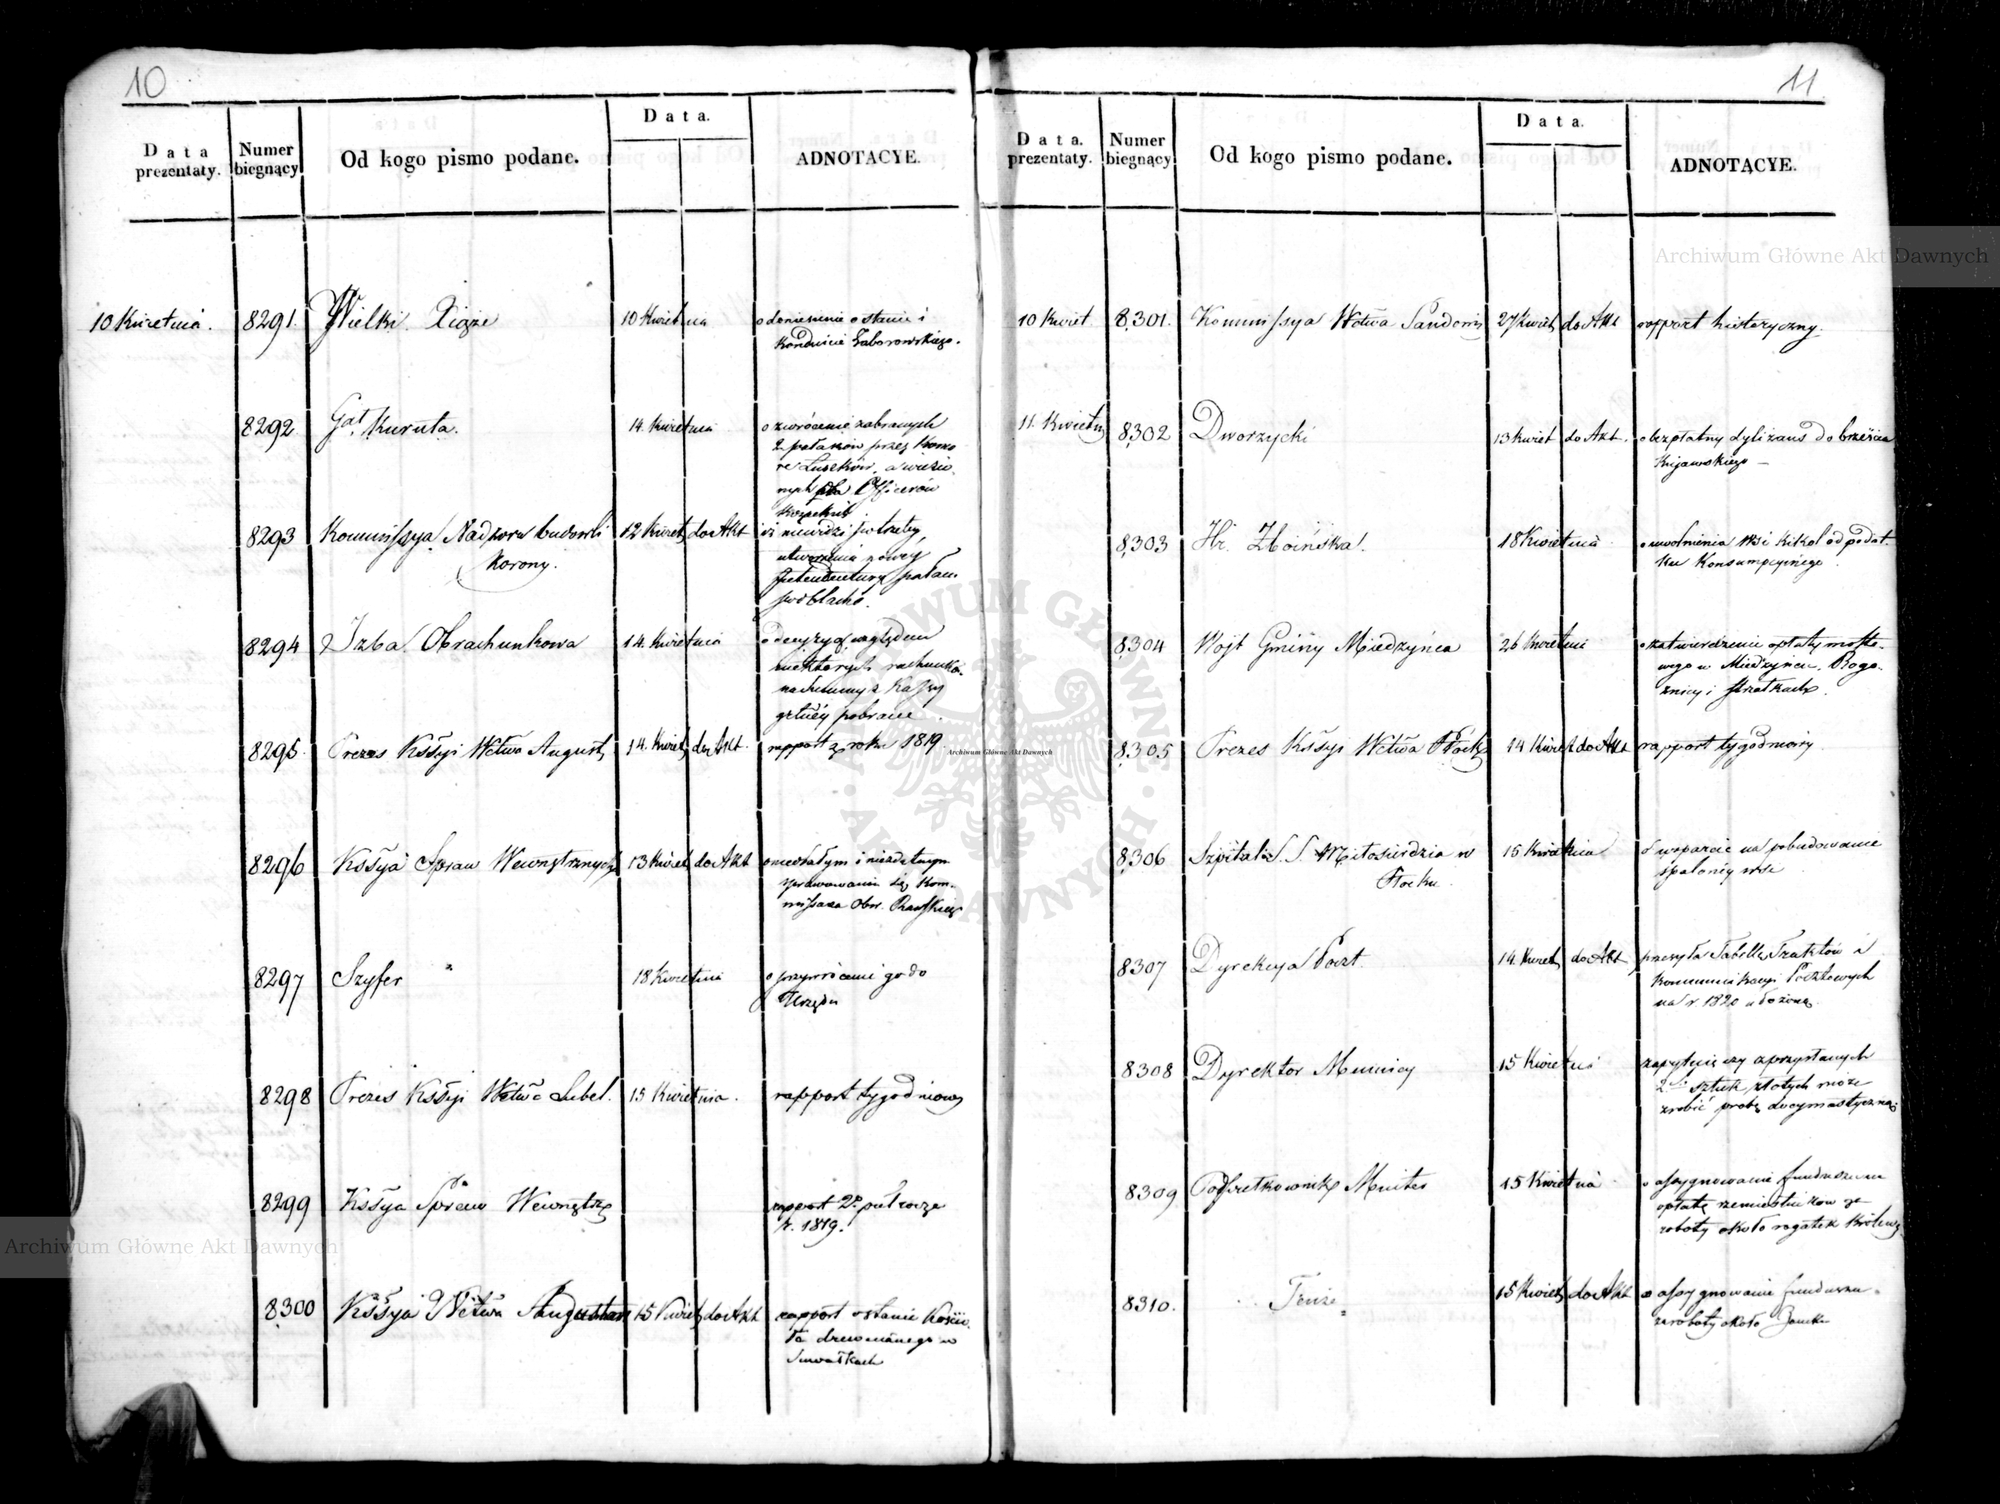 10
Data prezentaty.
Numer biegnący
Od kogo pismo podane.
Data.
ADNOTACYE.
10 Kwietnia. 8291. Wielki Xiąże 10 Kwietnia o doniesienie o stanie i
konduicie Zaborowskiego.
8292 Gał Kuruta. 14 Kwietnia o zwrócenie zabranych
2 pałaków przez
nych Officerów
8293 Kommissya Nadzoru budowli 12 Kwiet do Akt iż niewidzi potrzeby
Korony. utworzenia nowey
Intendentury pałacu
podblachą.
8294 Izba Obrachunkowa 14 Kwietnia o decyzyą względem
niektórych rachunków
pobrane
8295 Prezes Kssyi Wctwa August 14 Kwiet do Akt. rapport z roku 1819
8296 Kssya Spraw Wewnętrznych 13 Kwiet do Akt o niedbałym i niezdatnym
sprawowaniu się Kom-
missarza Obw. Rawskieg
8297 Szyfer 18 Kwietnia o przywrócenie go do
Urzędu
8298 Prezes Kssyi Wctwa Lubel. 15 Kwietnia. rapport tygodniowy
8299 Kssya Spraw Wewnętrz rapport 2o półrocza
r. 1819.
8300 Kssya Wctwa Augustow 15 Kwiet do Akt rapport o stanie Kościo-
ła drewnianego w
Suwałkach
11
Data. prezentaty.
Numer biegnący
Od kogo pismo podane.
Data.
ADNOTACYE.
10 Kwiet. 8301. Kommissya Wctwa Sandomi 27 Kwiet do Akt rapport historyczny.
11. Kwietn 8302 Dworzycki 13 Kwiet do Akt. o bezpłatny dyliżans do brześcia
Kujawskiego —
8303 Hr. Zboińska. 18 Kwietnia o uwolnienia wsi Kikoł od podat-
ku Konsumpcyinego
8304 Wojt Gminy Miedzyńca 26 Kwietnia o zatwierdzenie opłaty mosto-
wego w Miedzyńcu, Rogo-
źnicy i
8305 Prezes Kssyi Wctwa Płock 14 Kwiet do Akt rapport tygodniowy
8306 Szpital S. S. Miłosierdzia w 15 Kwietnia o wsparcie na pobudowanie
Płocku. spalonéy wsi
8307 Dyrekcya Poczt. 14. Kwiet do Akt przesyła Tabellę Traktów i
Kommunikacyi Pocztowych
na r. 1820 ułożoną.
8308 Dyrektor Mennicy 15 Kwietnia zapytuie czy z przysłanych
2ch sztuk złotych może
zrobić probę docymastyczną.
8309 Podpułkownik Minter 15 Kwietnia o assygnowanie funduszu na
opłatę rzemieślników za
roboty około rogatek Królews
8310. Tenże 15 Kwiet do Akt o assygnowanie funduszu
za roboty około Zamku
Archiwum Główne Akt Dawnych
Archiwum Główne Akt Dawnych
Archiwum Główne Akt Dawnych
ARCHIWUM GŁÓWNE AKT DAWNYCH